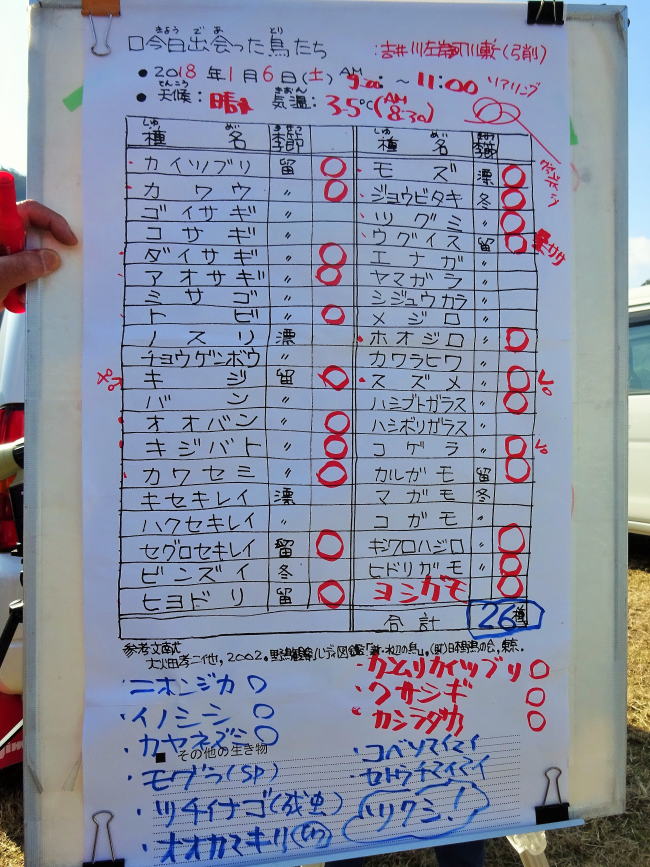 きょう で あ とり
□今日出会った鳥たち
吉井川左岸河川敷(弓削)
● 2018年1月6日(土) AM 9:00 ~ 11:00
ソアリング
てんこう きおん
● 天候: 晴れ 気温: 3.5℃(AM 8:30)
しゅ めい きせつ
種 名 季節
カイツブリ 留 ○
カワウ 〃 ○
ゴイサギ 〃
コサギ 〃
ダイサギ 〃 ○
アオサギ 〃 ○
ミサゴ 〃
トビ 〃 ○
ノスリ 漂
チョウゲンボウ 〃
キジ 留 ○
バン 〃
オオバン 〃 ○
キジバト 〃 ○
カワセミ 〃 ○
キセキレイ 漂
ハクセキレイ 〃
セグロセキレイ 留 ○
ビンズイ 冬
ヒヨドリ 留 ○
しゅ めい きせつ
種 名 季節
モズ 漂 ○
ジョウビタキ 冬 ○
ツグミ 〃 ○
ウグイス 留 ○
エナガ 〃
ヤマガラ 〃
シジュウカラ 〃
メジロ 〃
ホオジロ 〃 ○
カワラヒワ 〃
スズメ 〃 ○
ハシブトガラス 〃 ○
ハシボソガラス 〃
コゲラ 〃 ○
カルガモ 留 ○
マガモ 冬
コガモ 〃
キンクロハジロ 〃 ○
ヒドリガモ 〃 ○
ヨシガモ ○
合計 26種
参考文献
・カムリカイツブリ ○
・クサシギ ○
・カシラダカ ○
・ニホンジカ ○
・イノシシ ○
・カヤネズミ ○
■ その他の生き物
・モグラ(SP)
・ツチイナゴ(成虫)
・オオカマキリ
・コベソマイマイ
・セトウチマイマイ
ハツクシ!